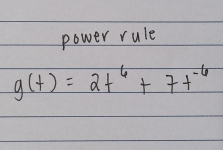 power rule
g(t) = 2t⁶ + 7t⁻⁶